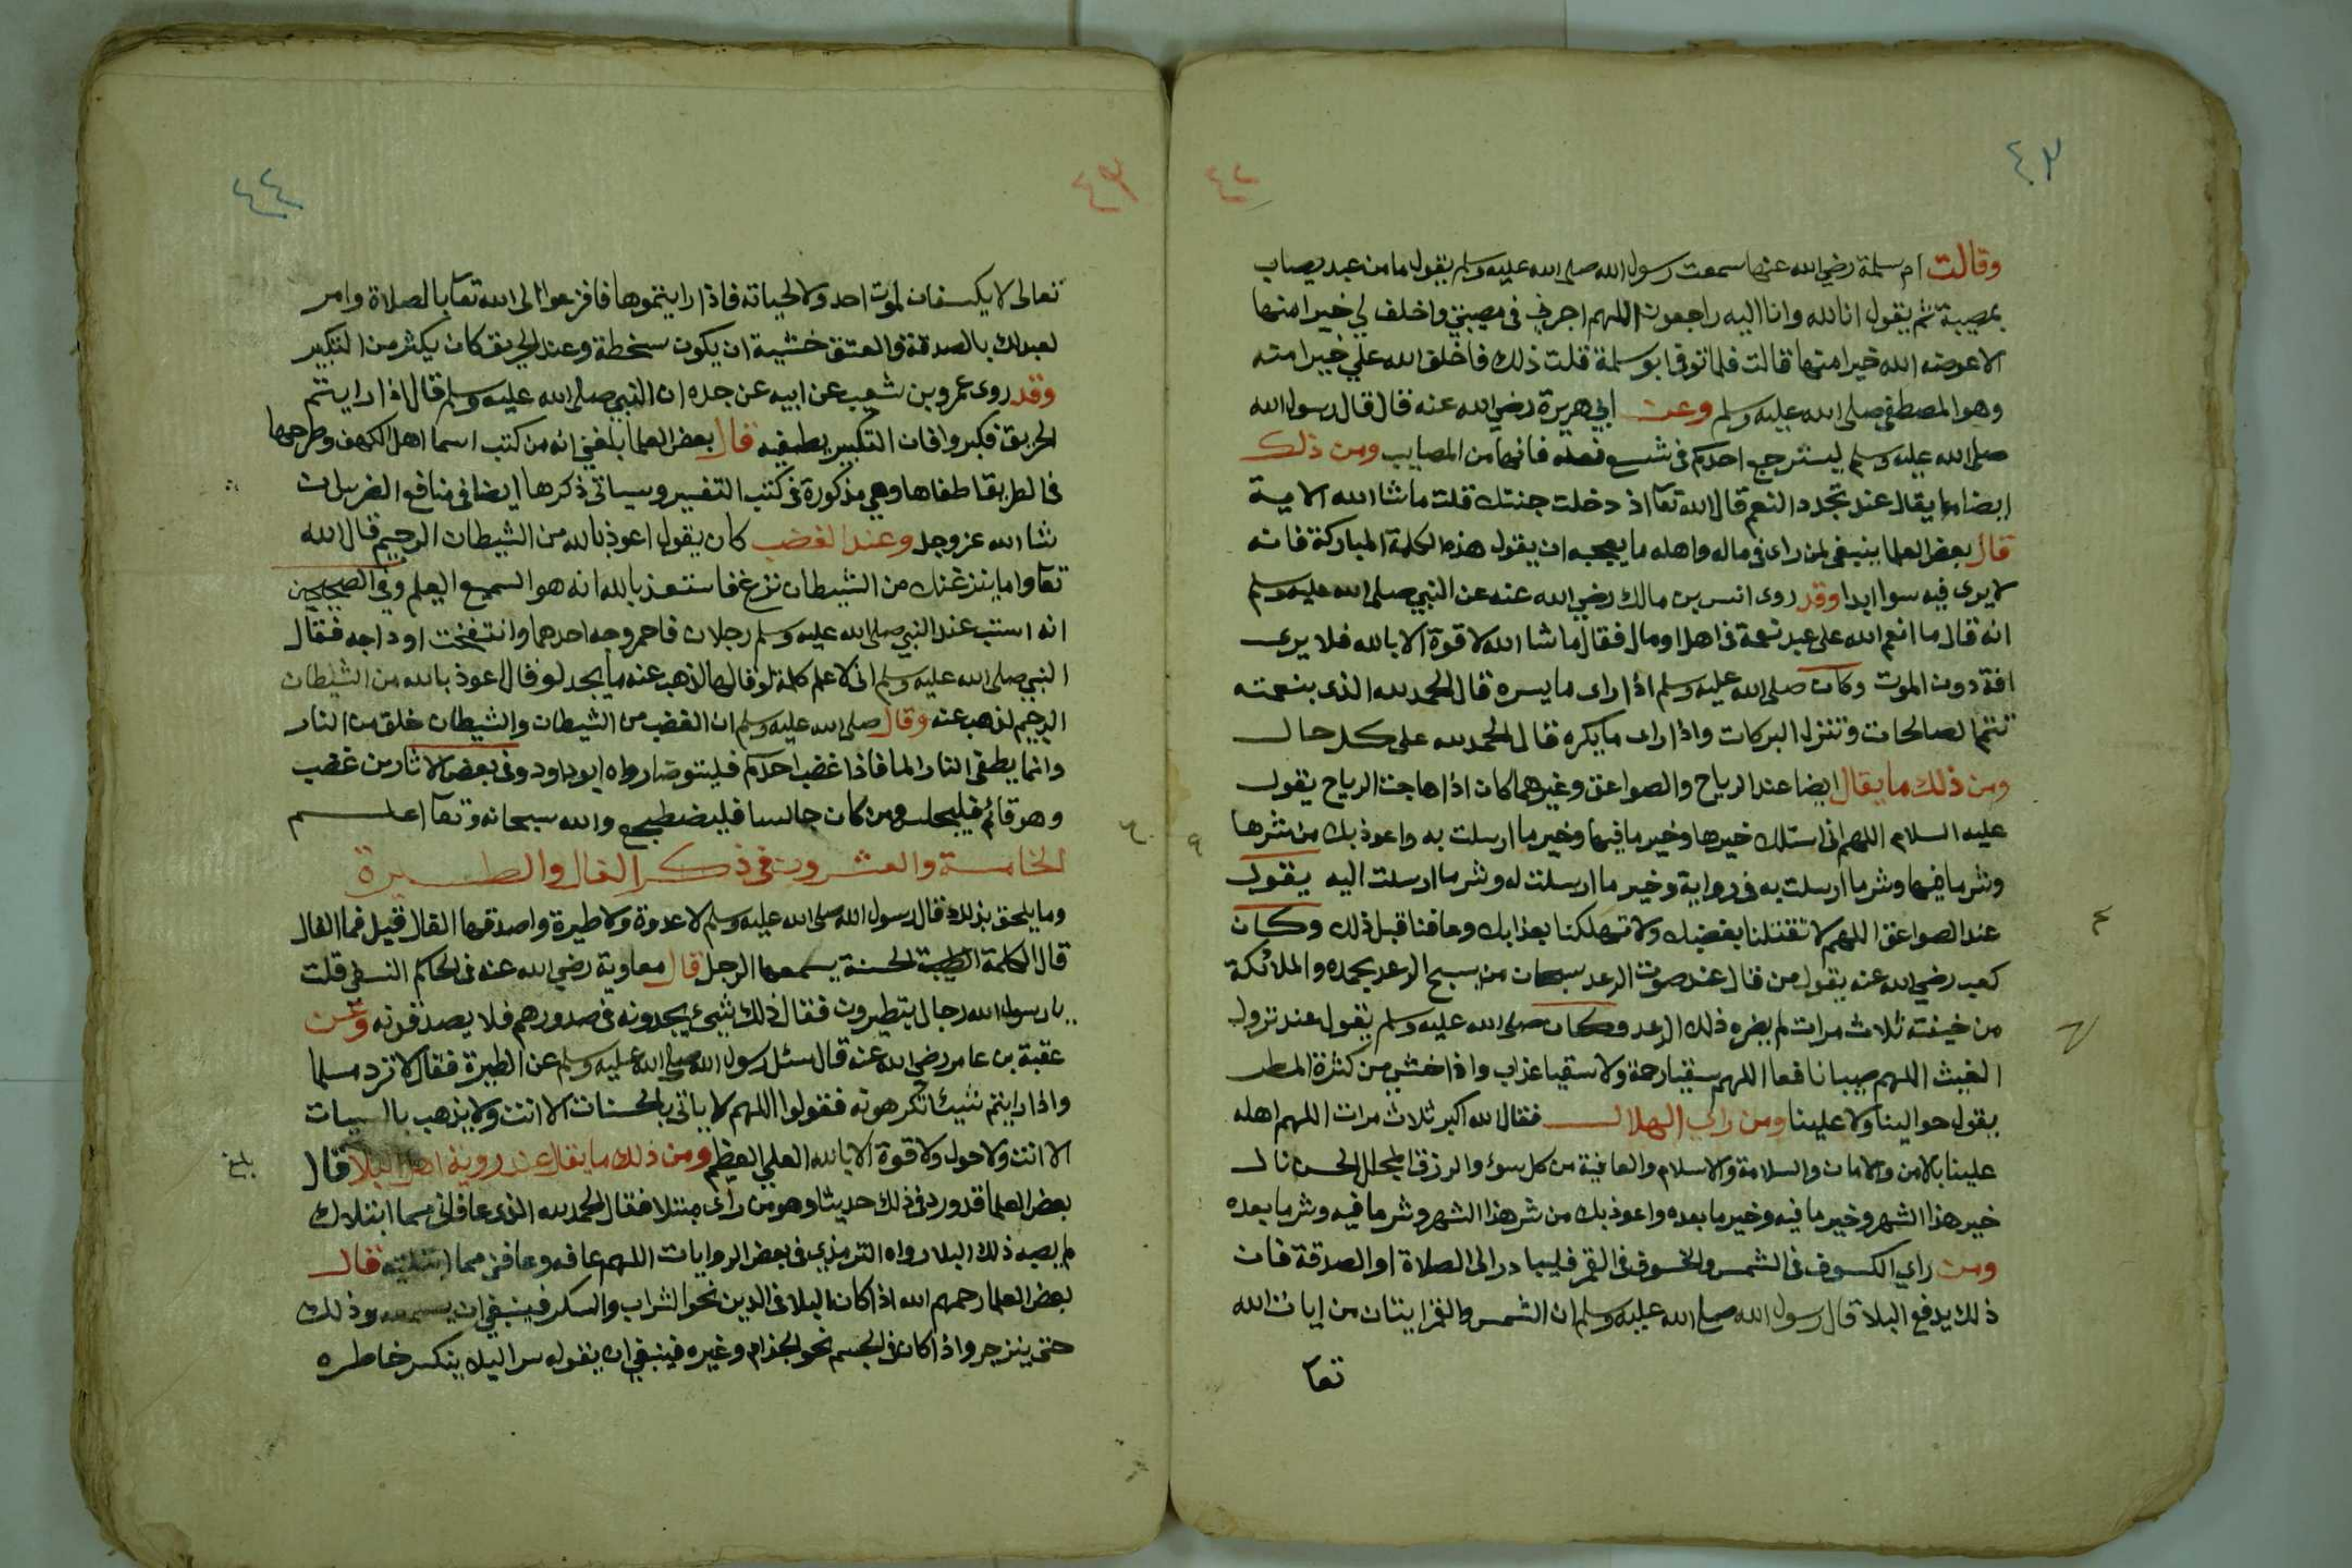 ٤٣
٤٢
وقالت ام سلمة رضي الله عنها سمعت رسول الله صلى الله عليه وسلم يقول ما من عبد يصاب
بمصيبة ثم يقول انا لله وانا اليه راجعون اللهم اجرني في مصيبتي واخلف لي خيرا منها
الا عوضه الله خيرا منها قالت فلما توفي ابو سلمة قلت ذلك فاخلق الله علي خيرا منه
وهو المصطفى صلى الله عليه وسلم وعن ابي هريرة رضي الله عنه قال قال رسول الله
صلى الله عليه وسلم ليسترجع احدكم في شسع نعله فانها من المصايب ومن ذلك
ايضا ما يقال عند تجدد النعم قال الله تعا اذ دخلت جنتك قلت ما شا الله الاية
قال بعض العلما ينبغي لمن راى في ماله واهله ما يعجبه ان يقول هذه الكلمة المباركة فانه
لا يرى فيه سوا ابدا وقد روى انس بن مالك رضي الله عنه عن النبي صلى الله عليه وسلم
انه قال ما انعم الله على عبد نعمة في اهل او مال فقال ما شا الله لا قوة الا بالله فلا يرى
افة دون الموت وكان صلى الله عليه وسلم اذا راى ما يسره قال الحمد لله الذي بنعمته
تتم الصالحات وتنزل البركات واذا راى ما يكره قال الحمد لله على كل حال
ومن ذلك ما يقال ايضا عند الرياح والصواعق وغيرهما كان اذا هاجت الرياح يقول
عليه السلام اللهم اني اسئلك خيرها وخير ما فيها وخير ما ارسلت به واعوذ بك من شرها
وشر ما فيها وشر ما ارسلت به في رواية وخير ما ارسلت له وشر ما ارسلت اليه يقول
عند الصواعق اللهم لا تقتلنا بغضبك ولا تهلكنا بعذابك وعافنا قبل ذلك وكان
كعب رضي الله عنه يقول من قال عند صوت الرعد سبحان من يسبح الرعد بحمده والملائكة
من خيفته ثلاث مرات لم يضره ذلك الرعد وكان صلى الله عليه وسلم يقول عند نزول
الغيث اللهم صيبا نافعا اللهم سقيا رحمة ولا سقيا عذاب واذا خشي من كثرة المطر
يقول حوالينا ولا علينا ومن راى الهلال فقال الله اكبر ثلاث مرات اللهم اهله
علينا بالامن والامان والسلامة والاسلام والعافية من كل سوء والرزق
خير هذا الشهر وخير ما فيه وخير ما بعده واعوذ بك من شر هذا الشهر وشر ما فيه وشر ما بعده
ومن راي الكسوف في الشمس والخسوف في القمر فليبادر الى الصلاة او الصدقة فان
ذلك يدفع البلا قال رسول الله صلى الله عليه وسلم ان الشمس والقمر ايتان من ايات الله
تعا
٤٣
٤٤
تعالى لا يكسفان لموت احد ولا لحياته فاذا رايتموها فافزعوا الى الله تعا بالصلاة وامر
بالصدقة والعتق خشية ان يكون سخطة وعند الحريق كان يكثر من التكبير
وقد روى عمرو بن شعيب عن ابيه عن جده ان النبي صلى الله عليه وسلم قال اذا رايتم
الحريق فكبروا فان التكبير يطفيه قال بعض العلما بلغني انه من كتب اسما اهل الكهف وطرحها
في الطريق اطفاها وهي مذكورة في كتب التفسير وسياتي ذكرها ايضا في منافع القران ان
شا الله عز وجل وعند الغضب كان يقول اعوذ بالله من الشيطان الرجيم قال الله
تعا واما ينزغنك من الشيطان نزغ فاستعذ بالله انه هو السميع العليم وفي الصحيحين
انه استب عند النبي صلى الله عليه وسلم رجلان فاحمر وجه احدهما وانتفخت اوداجه فقال
النبي صلى الله عليه وسلم اني لاعلم كلمة لو قالها لذهب عنه ما يجد لو قال اعوذ بالله من الشيطان
الرجيم لذهب عنه وقال صلى الله عليه وسلم ان الغضب من الشيطان والشيطان خلق من النار
وانما يطفى النار الما فاذا غضب احدكم فليتوضا رواه ابو داود وفي بعض الاثار من غضب
وهو قائم فليجلس ومن كان جالسا فليضطجع والله سبحانه وتعا اعلم
الخامسة والعشرون في ذكر الفال والطيرة
وما يلحق بذلك قال رسول الله صلى الله عليه وسلم لا عدوة ولا طيرة واصدقها الفال قيل فما الفال
قال الكلمة الطيبة الحسنة يسمعها الرجل قال معاوية رضي الله عنه في الحاكم النسفي قلت
يا رسول الله رجال يتطيرون فقال ذلك شيء يجدونه في صدورهم فلا يصدقونه وعن
عقبة بن عامر رضي الله عنه قال سئل رسول الله صلى الله عليه وسلم عن الطيرة فقال لا ترد مسلما
واذا رايتم شيئا تكرهونه فقولوا اللهم لا ياتي بالحسنات الا انت ولا يذهب بالسيات
الا انت ولا حول ولا قوة الا بالله العلي العظيم ومن ذلك ما يقال عند روية اهل البلا قال
بلغ
بعض العلما قد ورد في ذلك حديثا وهو من راى مبتلا فقال الحمد لله الذي عافاني مما ابتلاك
لم يصبه ذلك البلا رواه الترمذي في بعض الروايات اللهم عافه وعافني مما ابتليته قال
بعض العلما رحمهم الله اذا كان البلا في الدين نحو الشراب والسكر فينبغي ان يسمعه وذلك
حتى ينزجر واذا كان في الجسم نحو الجذام وغيره فينبغي ان يقوله سرا ليلا ينكسر خاطره